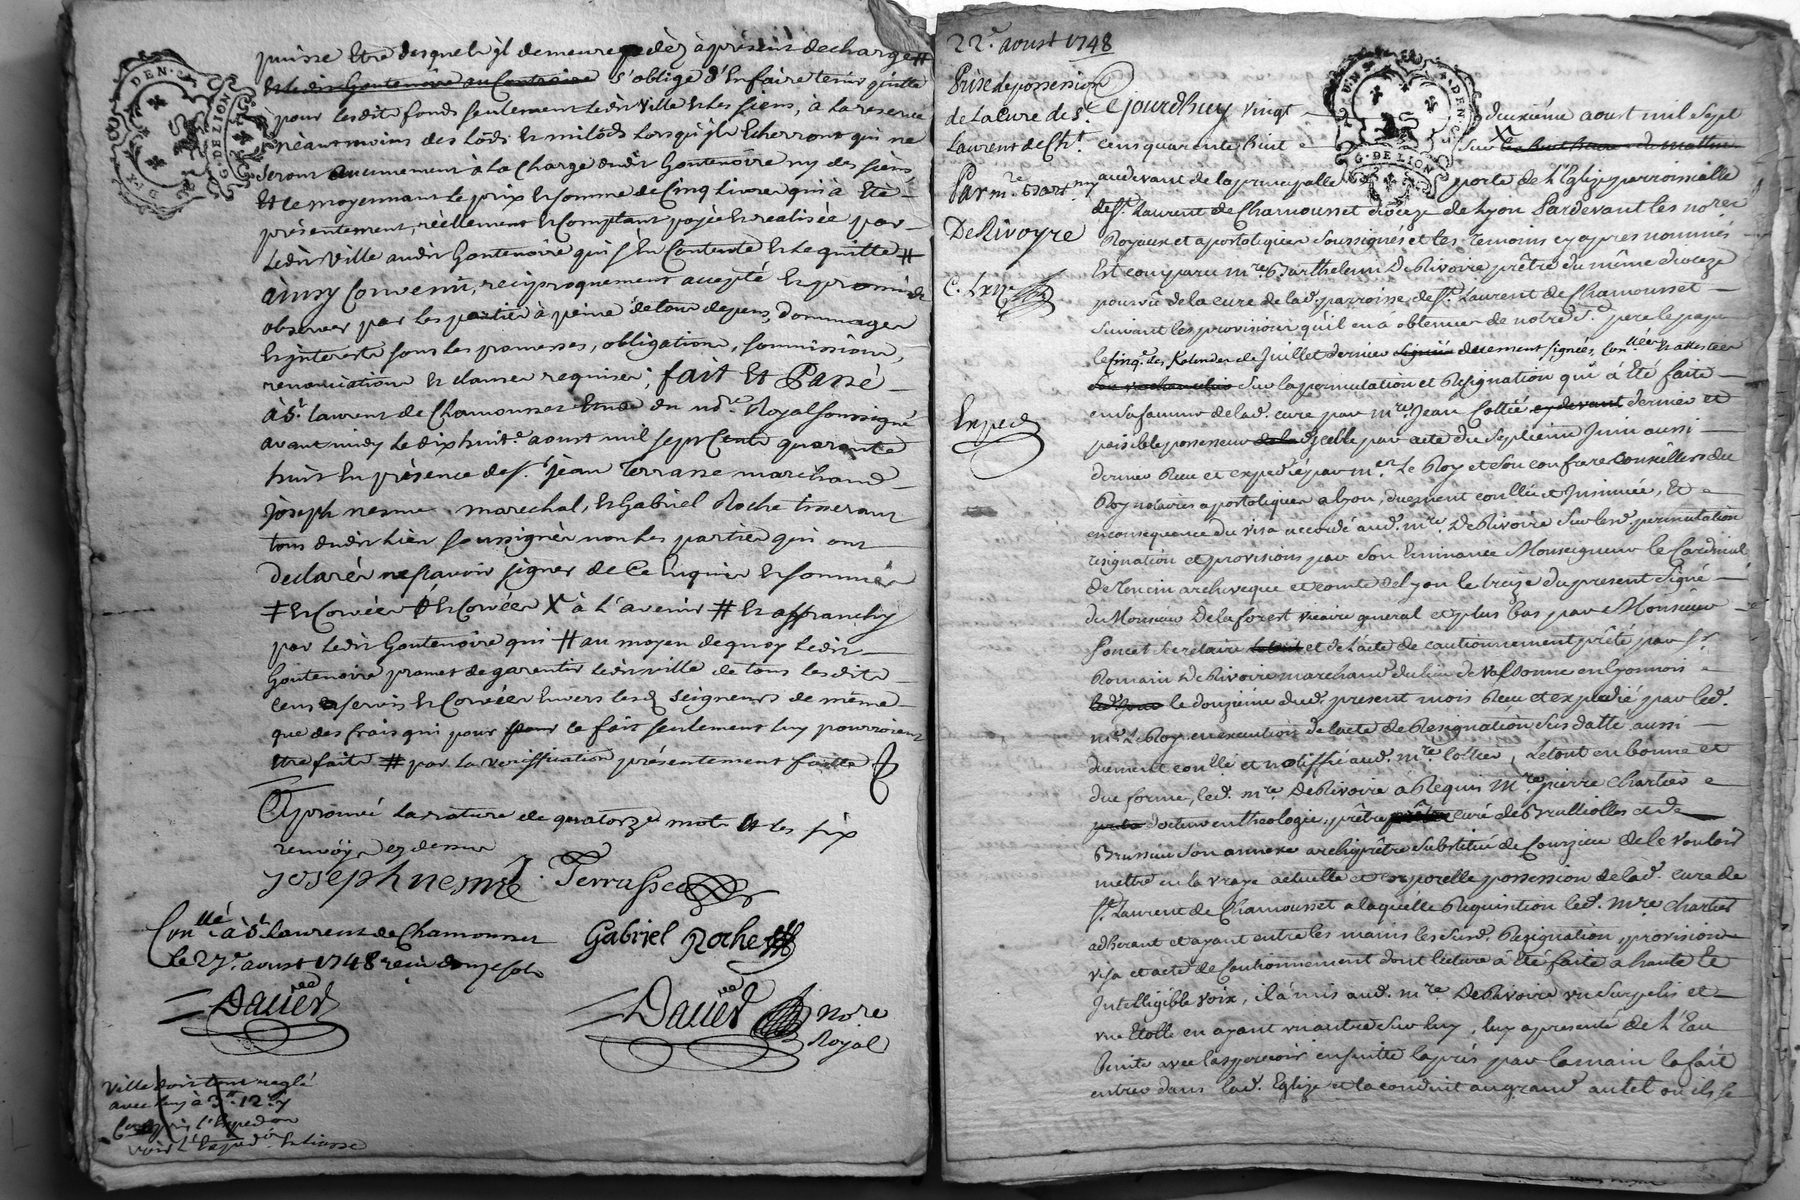 puisse Etre desquels il demeure dèz à présent dechargé #
Et ledit Gontenoire au Contraire s'oblige d'En faire tenir quitte
pour lesdits fonds seulement ledit Ville Et les siens, à la reserve
néantmoins des Lods Et milods Lorsqu'ils Echerront qui ne
seront aucunement à la Charge dudit Gontenoire ny des siens,
Et le moyennant le prix Et somme de Cinq Livres qui à Eté
présentement, réellement Et Comptant payée Et realisée par
Ledit Ville audit Gontenoire qui s'En Contente Et Le quitte #
ainsy Convenu, réciproquement accepté Et promis
observer par Les parties à peine de tous depens, dommages
Et jnterests sous les promesses, obligations, soumissions,
renonciations Et clauses requises; fait Et Passé
à St. laurent de Chamousset Etude du nore. Royal soussigné
avant midy Le dixhuite. aoust mil sept Cents quarante
huit En présence de sr. jean Terrasse marchand
joseph nesme marechal, Et Gabriel Roche tisserant
tous dudit Lieu soussignés non Les parties qui ont
declarés ne sçavoir signer de Ce Enquis Et sommés
‡ Et Corvées Et Corvées X à L'avenir # Et affranchy
par Ledit Gontenoire qui # au moyen de quoy Ledit
Gontenoire promet de garentir ledit Ville de tous lesdits
Cens Et servis Et Corvées Envers lesd. seigneurs de même
que des frais qui pour pour ce fait seulement luy pourroient
Etre faits # par La veriffication présentement faitte
Approuvé La rature de quatorze mots Et Les six
renvoys cy dessus
joseph nesme Terrasse
Conllé à St. Laurent de Chamousset
Le 27e. aoust 1748 reçu douze sols
Gabriel Roche
Daviet
Daviet Nore
Royal
Ville doit tout reglé
avec luy à 3lt. 12s.
Compris L'Expedon
voir L'Expedon En liasse
22e. aoust 1748
Prise de possession
de La Cure de St.
Laurent de Cht.
Par mre. Barthmy
DeRivoyre
C. Lxve
Exped
Cejourdhuy vingt deuxiéme aoust mil sept
cens quarente huit sur X les huit heures du mattin
audevant de la principalle porte de L'Eglise parroissialle
de St. Laurent de Chamousset dioceze de Lyon Pardevant les nores
Royaux et apostoliques soussignés et les temoins cy apres nommés
Est comparu mre. Barthelemi DeRivoire prêtre du même dioceze
pourvû de la cure de lad. parroisse de St. Laurent de Chamousset
suivant les provisions qu'il en a obtenues de notre St. pere le pape
le cinq. des Kalendes de Juillet dernier signée duement signées, Conllées Et attestées
sur la permutation et Resignation qui à Eté faite
en sa faveur de lad. cure par mre. Jean Collié cydevant dernier et
paisible possesseur de la d'jcelle par acte du septiéme Juin aussi
dernier Reçu et expedié par me. Le Roy et son confrere Conseillers du
Roy notaires apostoliques a Lyon, duement conllé et Jnsinuée, Et
en consequence du visa accordé aud. mre. DeRivoire sur lesd. permutation
resignation et provisions par son Eminance Monseigneur le Cardinal
de Tencin archevèque et comte de Lyon le treize du present signé
de Monsieur Delaforest vicaire general et plus bas par Monsieur
Poncet secretaire et de l'acte de cautionnement prêté par Sr.
Romain DeRivoire marchand du lieu de Valsonne en Lyonnois
le douziéme dud. present mois Reçu et expedié par led.
me. Le Roy en execution de l'acte de Resignation susdatté aussi
duement conllé et notiffié aud. mre. Collier, Le tout en bonne et
due forme, led. mre. DeRivoire à Requis Mre. pierre Chartier
docteur en theologie, prêtre curé de Brulliolles et de
Brussieu son annexe archiprêtre substitué de Courzieu de le vouloir
mettre en la vraye actuelle et corporelle possession de lad. cure de
St. Laurent de Chamousset a laquelle Requisition led. mre. Chartier
adherant et ayant entre les mains les susd. Resignation, provisions
visa et acte de Cautionnement dont lecture à Eté faite a haute Et
Jntelligible voix, il à mis aud. mre. DeRivoire un surpelis et
une Etolle en ayant un autre sur luy, luy a presenté de L'Eau
Benite avec l'aspersoir ensuitte l'a pris par la main la fait
entrer dans lad. Eglise et la conduit au grand autel ou ils se
G. DE LION
G. DE LION